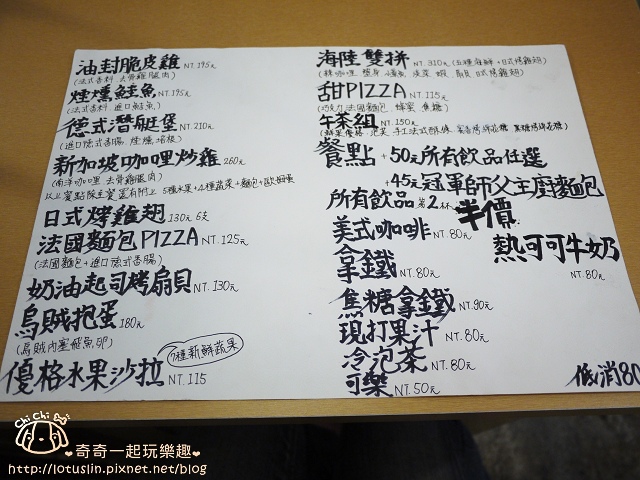 油封脆皮雞 NT.195元
(法式香料.去骨雞腿肉)
煙燻鮭魚 NT.195元
(法式香料.進口鮭魚)
德式潛艇堡 NT.210元
(進口德式香腸.煙燻培根)
新加坡咖哩炒雞 260元
(南洋咖哩.去骨雞腿肉)
以上餐點除主餐還有附上
日式烤雞翅 130元 6支
法國麵包PIZZA NT.125元
(法國麵包+進口德式香腸)
奶油起司烤扇貝 NT.130元
烏賊抱蛋 180元
(烏賊內塞飛魚卵)
7種新鮮蔬果
優格水果沙拉 NT.115
海陸雙拼 NT.310元 (五種海鮮+日式烤雞翅)
甜PIZZA NT.115元
(巧克力.法國麵包.蜂蜜.焦糖)
午茶組 NT.150元
餐點+50元所有飲品任選
+45元冠軍師父主廚麵包
所有飲品第2杯半價
美式咖啡 NT.80元
熱可可牛奶 NT.80元
拿鐵 NT.80元
焦糖拿鐵 NT.90元
現打果汁 NT.80元
冷泡茶 NT.80元
可樂 NT.50元
低消180
Chi Chi
♥奇奇一起玩樂趣♥
http://lotuslin.pixnet.net/blog